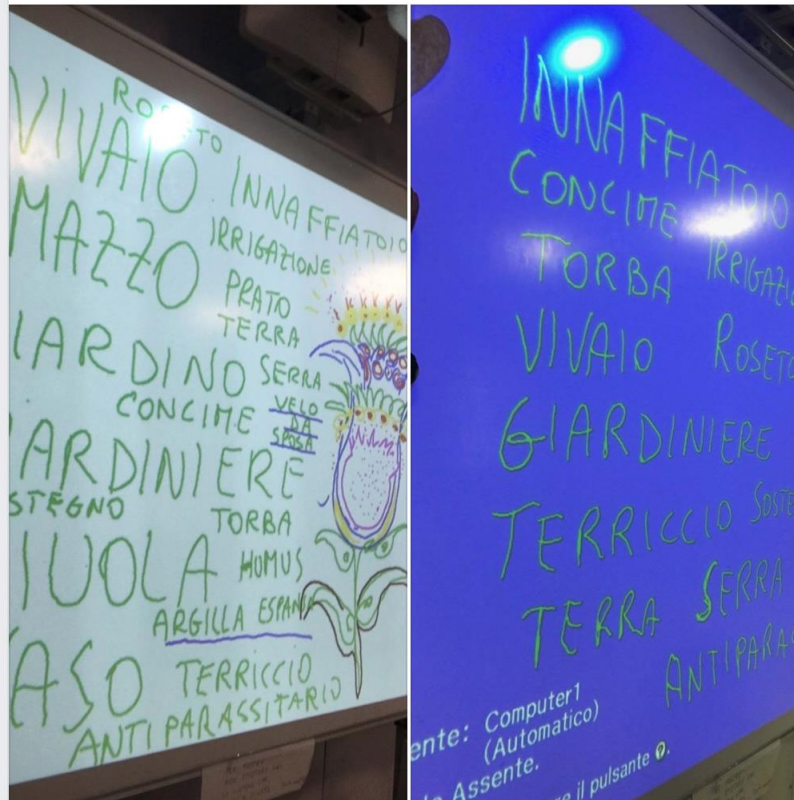 ROSETO
VIVAIO
INNAFFIATOIO
MAZZO
IRRIGAZIONE
PRATO
TERRA
IARDINO
SERRA
CONCIME
VELO
DA
SPOSA
ARDINIERE
STEGNO
TORBA
IUOLA
HUMUS
ARGILLA ESPAN
ASO
TERRICCIO
ANTIPARASSITARIO
INNAFFIATOIO
CONCIME
TORBA IRRIGAZI
VIVAIO ROSETO
GIARDINIERE
TERRICCIO SOSTE
TERRA SERRA
ANTIPARAS
ente: Computer1
(Automatico)
Assente.
e il pulsante